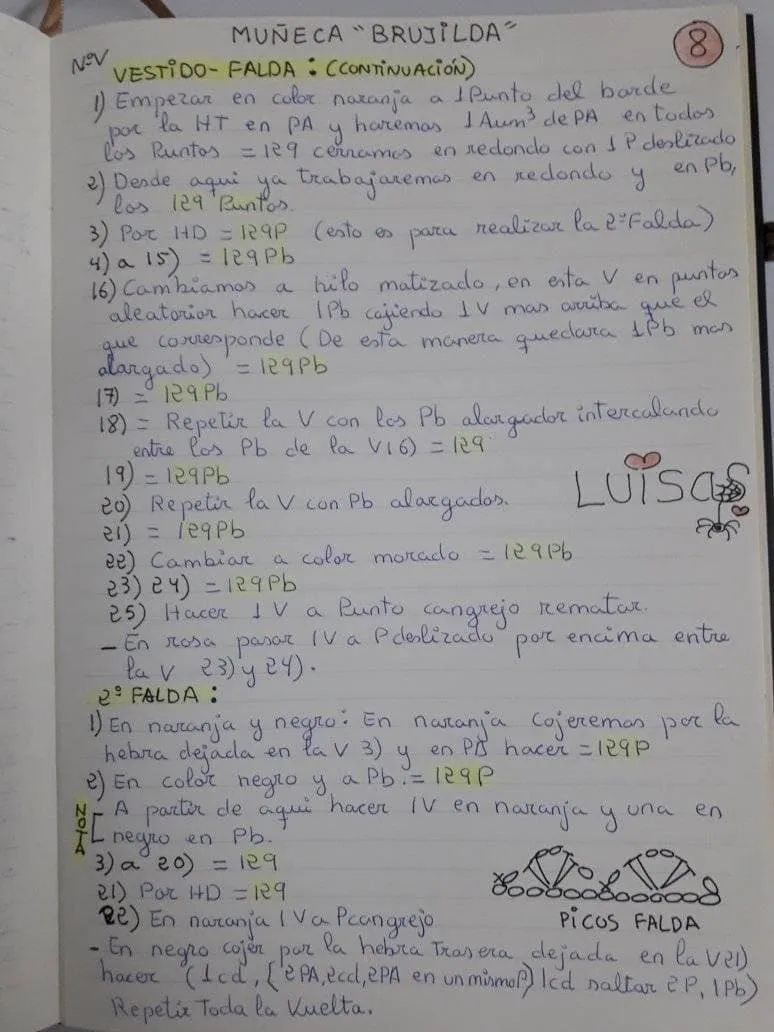 MUÑECA "BRUJILDA"
8
NºV
VESTIDO-FALDA: (CONTINUACIÓN)
1) Empezar en color naranja a 1 Punto del borde
por la HT en PA y haremos 1 Aum³ de PA en todos
los Puntos = 129 cerramos en redondo con 1 P deslizado
2) Desde aqui ya trabajaremos en redondo y en Pb,
los 129 Puntos.
3) Por HD = 129P (esto es para realizar la 2ª Falda)
4) a 15) = 129Pb
16) Cambiamos a hilo matizado, en esta V en puntos
aleatorios hacer 1Pb cojiendo 1V mas arriba que el
que corresponde (De esta manera quedara 1Pb mas
alargado) = 129Pb
17) = 129Pb
18) = Repetir la V con los Pb alargador intercalando
entre los Pb de la V16) = 129
19) = 129Pb
LUISAS
20) Repetir la V con Pb alargados.
21) = 129Pb
22) Cambiar a color morado = 129Pb
23) 24) = 129Pb
25) Hacer 1 V a Punto cangrejo rematar.
- En rosa pasar 1V a P deslizado por encima entre
la V 23) y 24).
2ª FALDA:
1) En naranja y negro: En naranja cojeremos por la
hebra dejada en la V 3) y en PA hacer = 129P
2) En color negro y a Pb. = 129P
NOTA
A partir de aqui hacer 1V en naranja y una en
negro en Pb.
3) a 20) = 129
21) Por HD = 129
22) En naranja 1 V a Pcangrejo
PICOS FALDA
- En negro cojer por la hebra Trasera dejada en la V21)
hacer (1cd, [2PA, 2cd, 2PA en un mismo P) 1cd saltar 2P, 1Pb)
Repetir Toda la Vuelta.